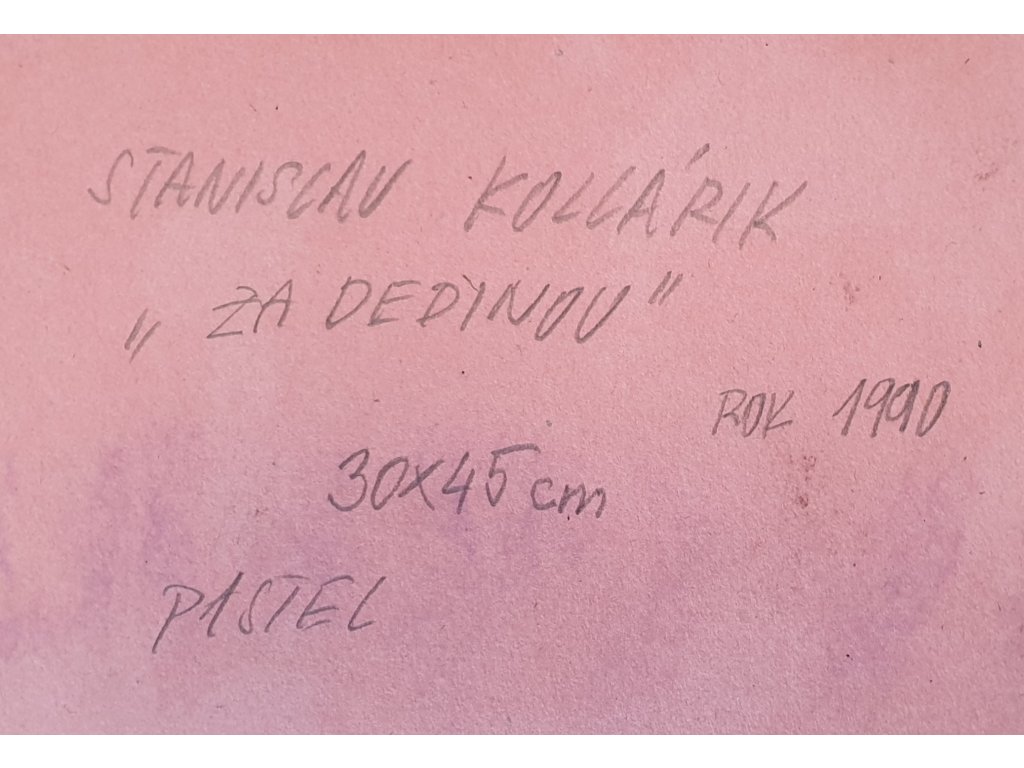 STANISLAV KOLLÁRIK
„ ZA DEDINOU "
ROK 1990
30x45 cm
PASTEL